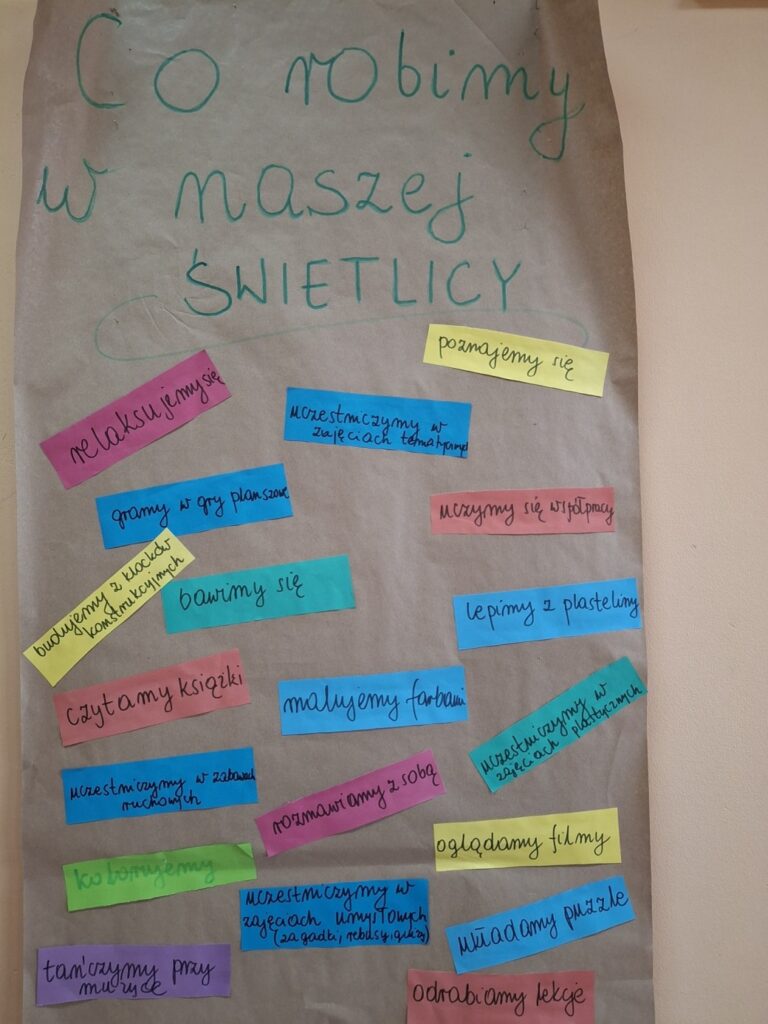 Co robimy
w naszej
ŚWIETLICY
poznajemy się
relaksujemy się
uczestniczymy w
zajęciach tematycznych
gramy w gry planszowe
uczymy się współpracy
budujemy z klocków
konstrukcyjnych
bawimy się
lepimy z plasteliny
czytamy książki
malujemy farbami
uczestniczymy w
zajęciach plastycznych
uczestniczymy w zabawach
ruchowych
rozmawiamy z sobą
oglądamy filmy
kolorujemy
uczestniczymy w
zajęciach umysłowych
(zagadki, rebusy, quizy)
układamy puzzle
tańczymy przy
muzyce
odrabiamy lekcje